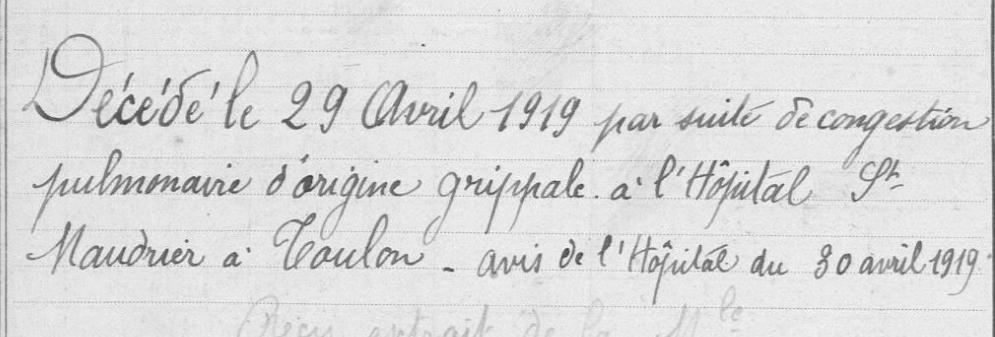 Décédé le 29 Avril 1919 par suite de congestion
pulmonaire d'origine grippale. à l'Hôpital St
Maudrier à Toulon - avis de l'Hôpital du 30 avril 1919.
Reçu extrait de la Mle